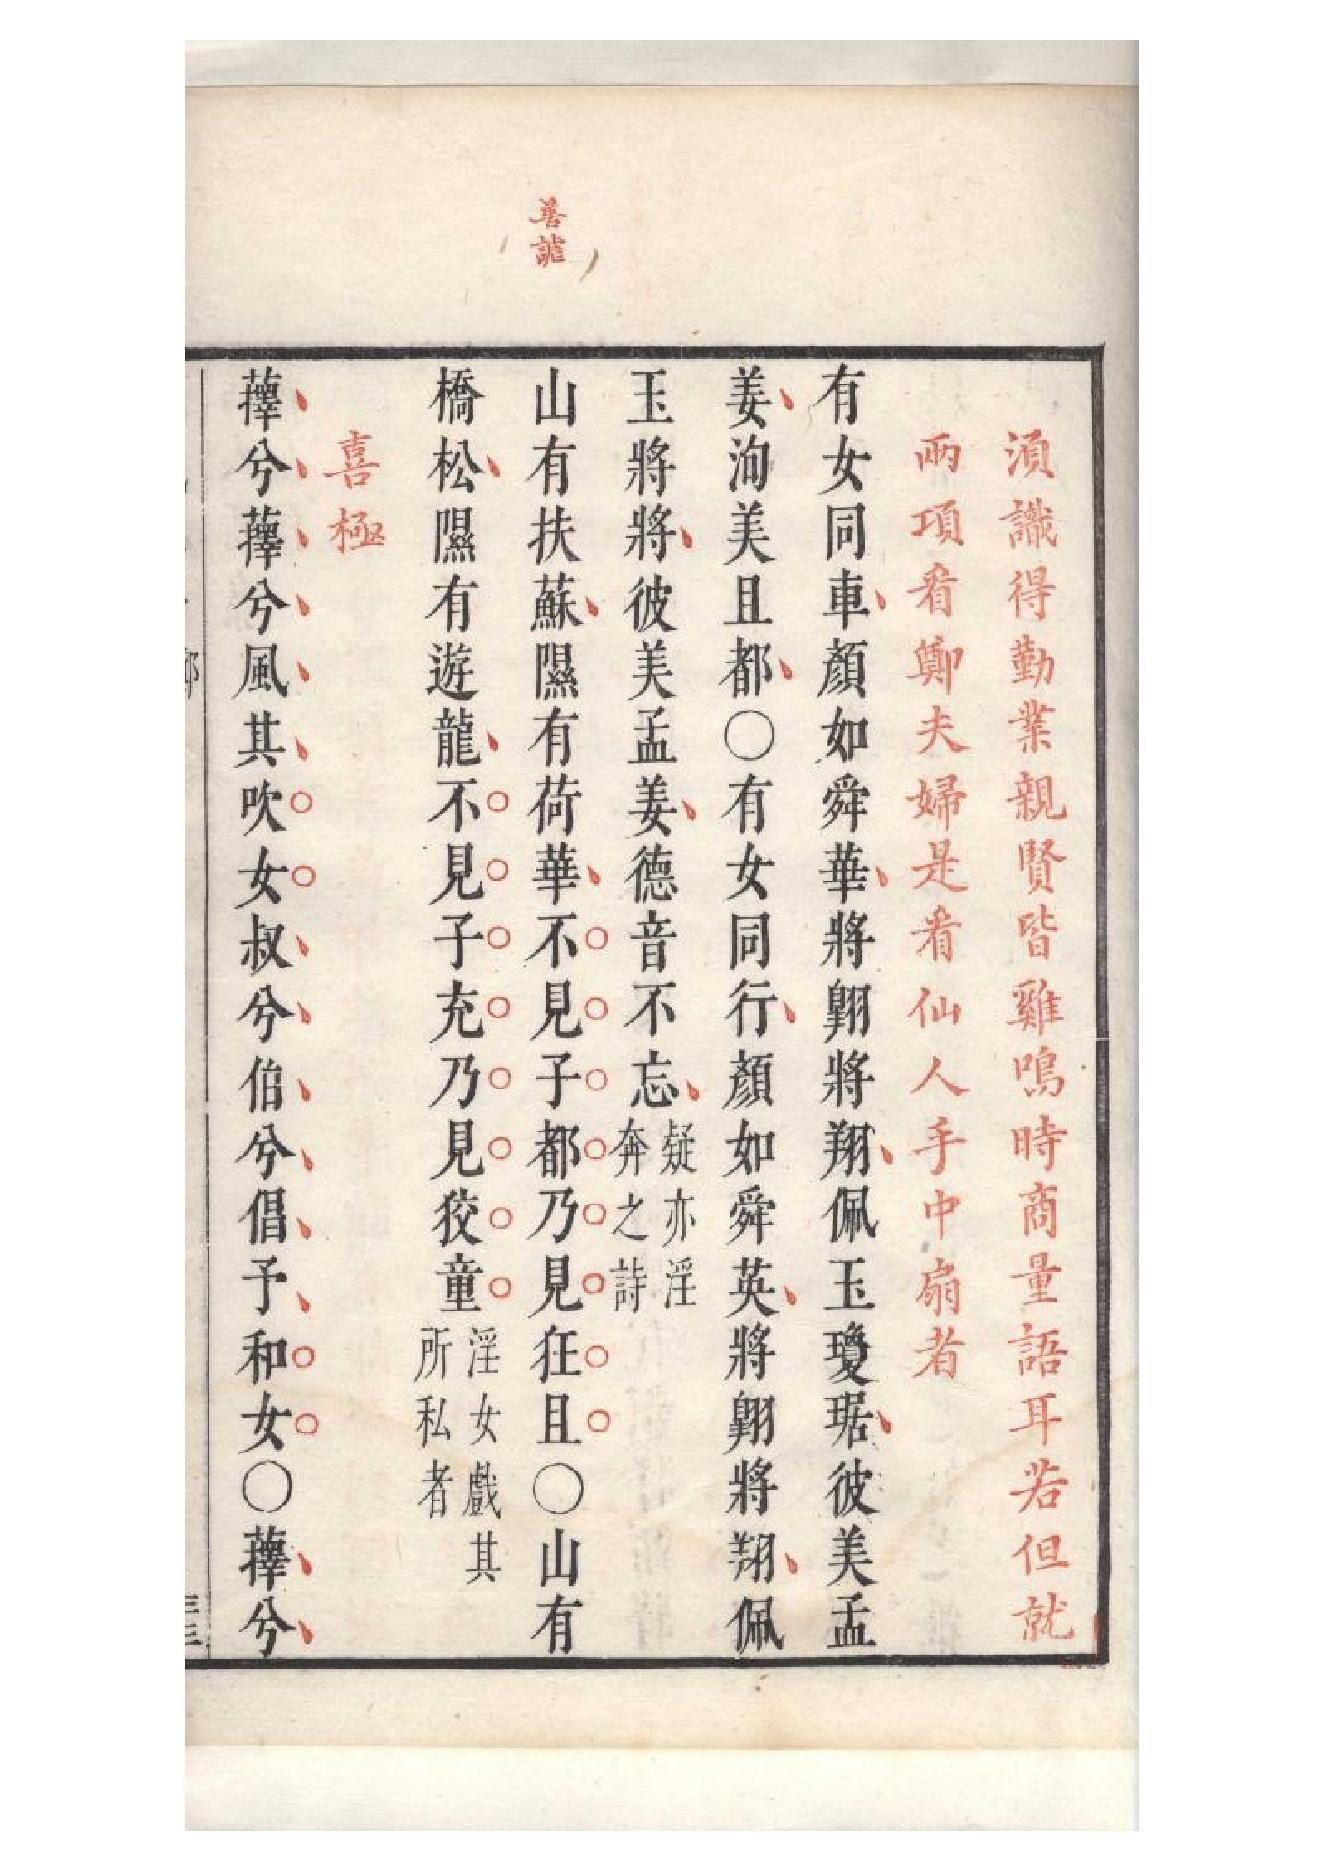 善謔
湏識得勤業親賢皆雞鳴時商量語耳若但就
兩項看鄭夫婦是看仙人手中扇者
有女同車顏如舜華將翺將翔佩玉瓊琚彼美孟
姜洵美且都〇有女同行顏如舜英將翺將翔佩
玉將將彼美孟姜德音不忘疑亦淫奔之詩
山有扶蘇隰有荷華不見子都乃見狂且〇山有
橋松隰有遊龍不見子充乃見狡童淫女戲其所私者
喜極
蘀兮蘀兮風其吹女叔兮伯兮倡予和女〇蘀兮